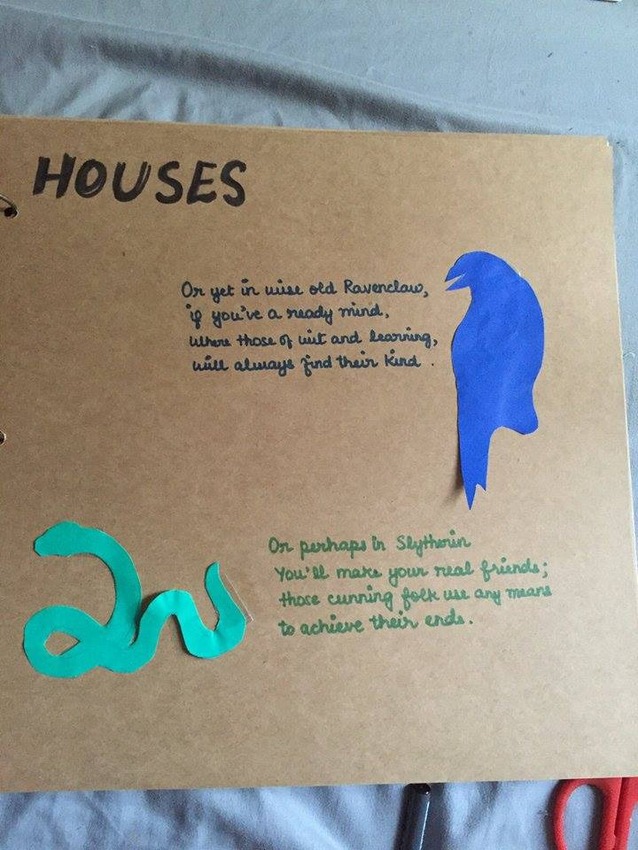 HOUSES
Or yet in wise old Ravenclaw,
if you've a ready mind,
where those of wit and learning,
will always find their kind .
Or perhaps in Slytherin
You'll make your real friends;
those cunning folk use any means
to achieve their ends.